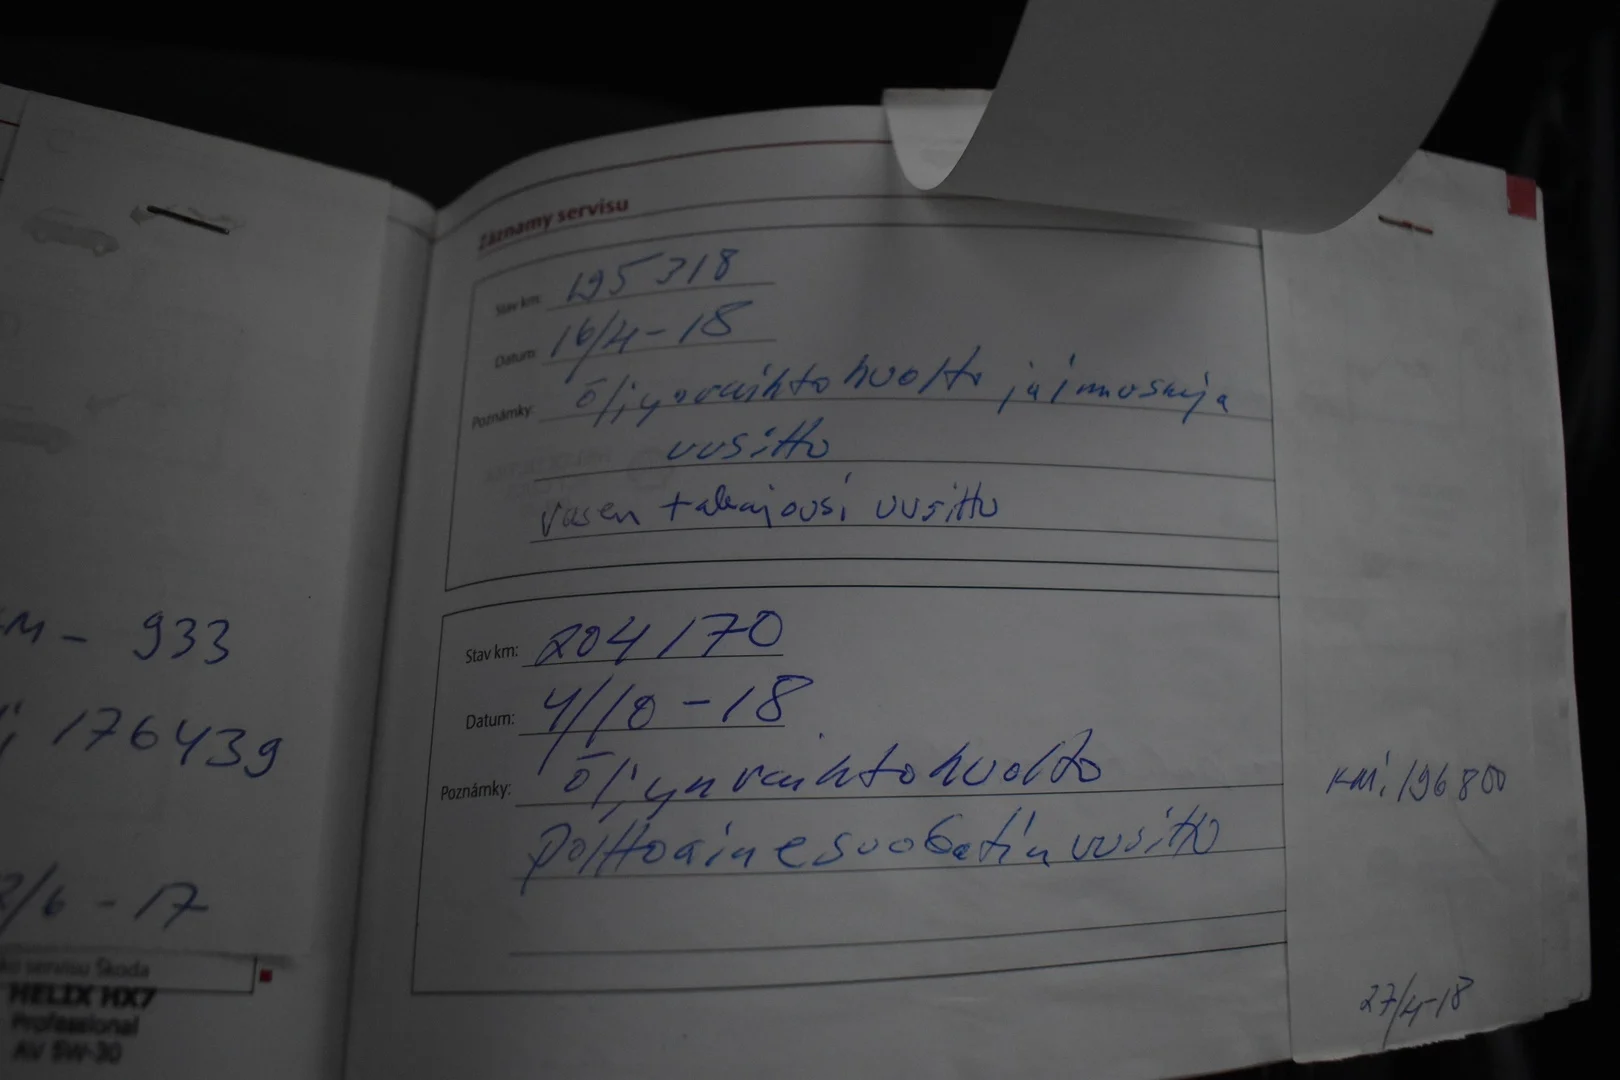 M - 933
176439
2/6 - 17
servisu Škoda
HELIX HX7
Professional
AV 5W-30
Záznamy servisu
Stav km: 195318
Datum: 16/4-18
Poznámky: öljynvaihtohuolto ja imusarja
uusittu
Vasen takajousi uusittu
Stav km: 204170
Datum: 4/10-18
Poznámky: öljynvaihtohuolto
polttoainesuodatin uusittu
196800
27/4-18